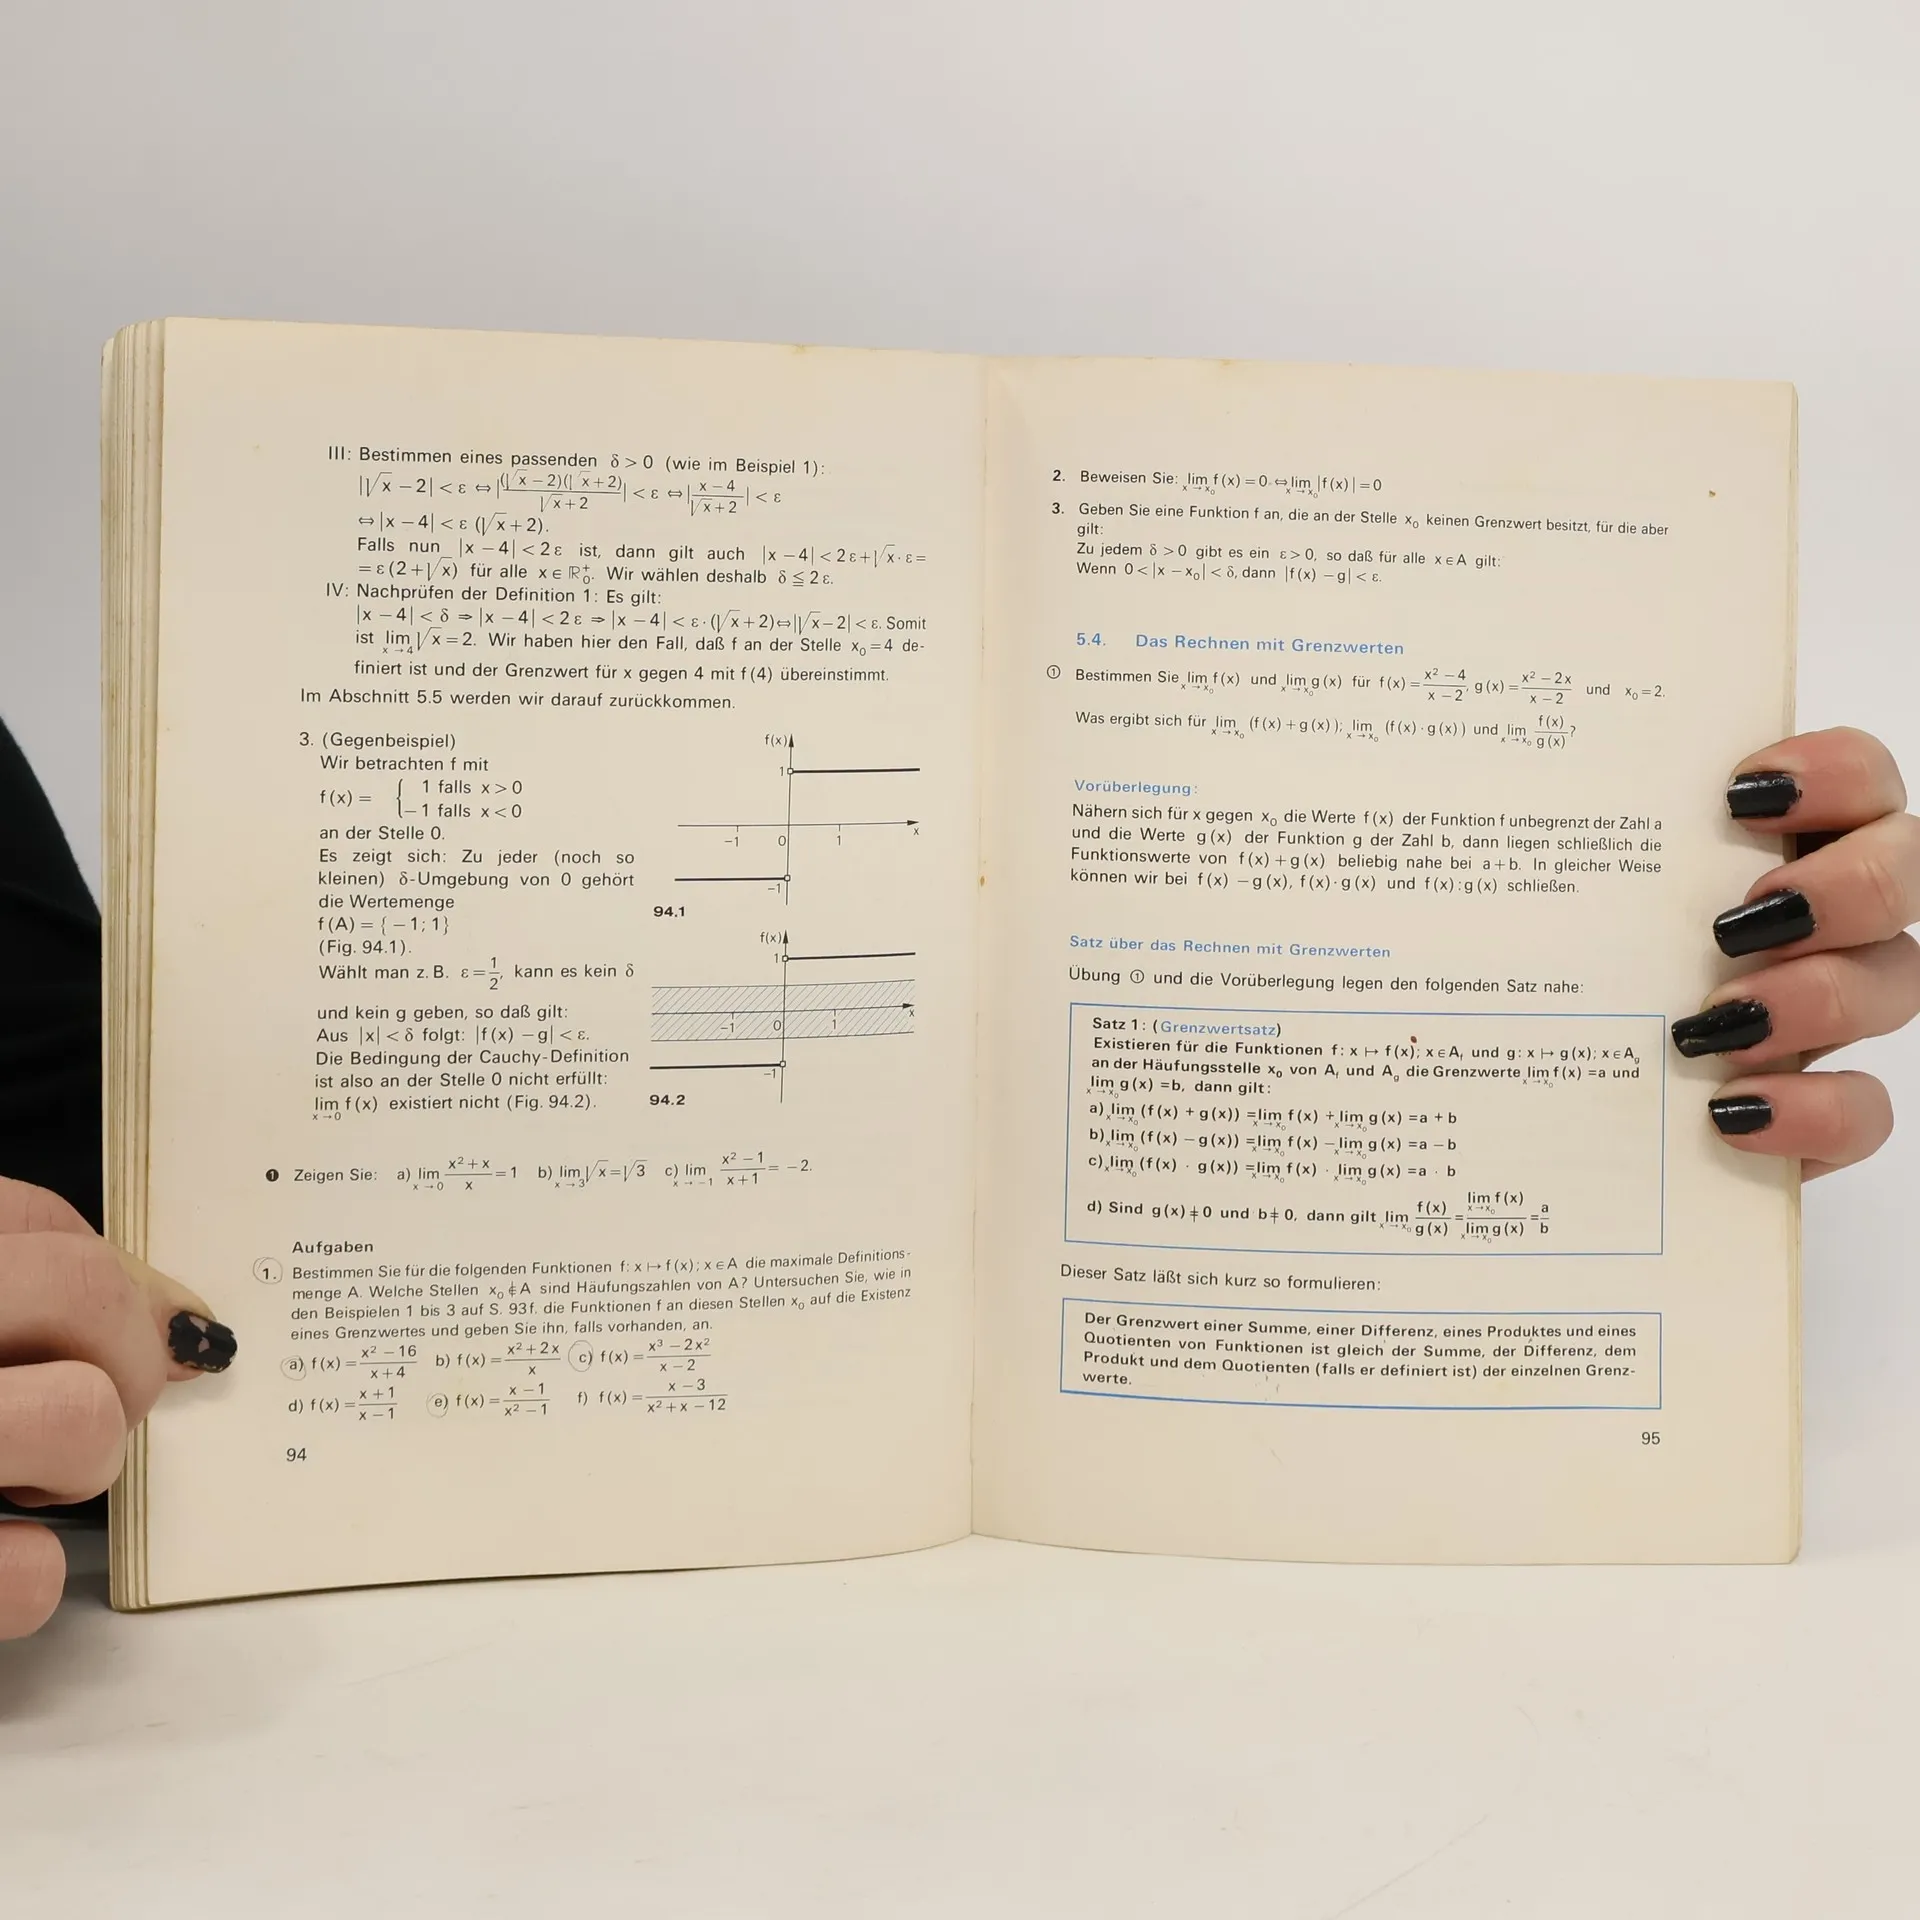 III: Bestimmen eines passenden δ > 0 (wie im Beispiel 1):
|√x − 2| < ε ⇔ |(√x − 2)(√x + 2)/(√x + 2)| < ε ⇔ |(x − 4)/(√x + 2)| < ε
⇔ |x − 4| < ε (√x + 2).
Falls nun |x − 4| < 2ε ist, dann gilt auch |x − 4| < 2ε + √x · ε =
= ε (2 + √x) für alle x ∈ ℝ₀⁺. Wir wählen deshalb δ ≦ 2ε.
IV: Nachprüfen der Definition 1: Es gilt:
|x − 4| < δ ⇒ |x − 4| < 2ε ⇒ |x − 4| < ε · (√x + 2) ⇔ |√x − 2| < ε. Somit
ist lim x→4 √x = 2. Wir haben hier den Fall, daß f an der Stelle x₀ = 4 de-
finiert ist und der Grenzwert für x gegen 4 mit f (4) übereinstimmt.
Im Abschnitt 5.5 werden wir darauf zurückkommen.
3. (Gegenbeispiel)
Wir betrachten f mit
f (x) = { 1 falls x > 0
− 1 falls x < 0
an der Stelle 0.
Es zeigt sich: Zu jeder (noch so
kleinen) δ-Umgebung von 0 gehört
die Wertemenge
f (A) = { − 1; 1}
(Fig. 94.1).
Wählt man z. B. ε = 1/2, kann es kein δ
und kein g geben, so daß gilt:
Aus |x| < δ folgt: |f (x) − g| < ε.
Die Bedingung der Cauchy-Definition
ist also an der Stelle 0 nicht erfüllt:
lim x→0 f (x) existiert nicht (Fig. 94.2).
f(x)
1
−1 0 1 x
−1
94.1
f(x)
1
−1 0 1 x
−1
94.2
❶ Zeigen Sie: a) lim x→0 (x² + x)/x = 1 b) lim x→3 √x = √3 c) lim x→−1 (x² − 1)/(x + 1) = − 2.
Aufgaben
1. Bestimmen Sie für die folgenden Funktionen f: x ↦ f (x); x ∈ A die maximale Definitions-
menge A. Welche Stellen x₀ ∉ A sind Häufungszahlen von A? Untersuchen Sie, wie in
den Beispielen 1 bis 3 auf S. 93f. die Funktionen f an diesen Stellen x₀ auf die Existenz
eines Grenzwertes und geben Sie ihn, falls vorhanden, an.
a) f (x) = (x² − 16)/(x + 4) b) f (x) = (x² + 2x)/x c) f (x) = (x³ − 2x²)/(x − 2)
d) f (x) = (x + 1)/(x − 1) e) f (x) = (x − 1)/(x² − 1) f) f (x) = (x − 3)/(x² + x − 12)
94
2. Beweisen Sie: lim x→x₀ f (x) = 0 ⇔ lim x→x₀ |f (x)| = 0
3. Geben Sie eine Funktion f an, die an der Stelle x₀ keinen Grenzwert besitzt, für die aber
gilt:
Zu jedem δ > 0 gibt es ein ε > 0, so daß für alle x ∈ A gilt:
Wenn 0 < |x − x₀| < δ, dann |f (x) − g| < ε.
5.4. Das Rechnen mit Grenzwerten
① Bestimmen Sie lim x→x₀ f (x) und lim x→x₀ g (x) für f (x) = (x² − 4)/(x − 2), g (x) = (x² − 2x)/(x − 2) und x₀ = 2.
Was ergibt sich für lim x→x₀ (f (x) + g (x)); lim x→x₀ (f (x) · g (x)) und lim x→x₀ f (x)/g (x)?
Vorüberlegung:
Nähern sich für x gegen x₀ die Werte f (x) der Funktion f unbegrenzt der Zahl a
und die Werte g (x) der Funktion g der Zahl b, dann liegen schließlich die
Funktionswerte von f (x) + g (x) beliebig nahe bei a + b. In gleicher Weise
können wir bei f (x) − g (x), f (x) · g (x) und f (x) : g (x) schließen.
Satz über das Rechnen mit Grenzwerten
Übung ① und die Vorüberlegung legen den folgenden Satz nahe:
Satz 1: (Grenzwertsatz)
Existieren für die Funktionen f: x ↦ f (x); x ∈ A_f und g: x ↦ g (x); x ∈ A_g
an der Häufungsstelle x₀ von A_f und A_g die Grenzwerte lim x→x₀ f (x) = a und
lim x→x₀ g (x) = b, dann gilt:
a) lim x→x₀ (f (x) + g (x)) = lim x→x₀ f (x) + lim x→x₀ g (x) = a + b
b) lim x→x₀ (f (x) − g (x)) = lim x→x₀ f (x) − lim x→x₀ g (x) = a − b
c) lim x→x₀ (f (x) · g (x)) = lim x→x₀ f (x) · lim x→x₀ g (x) = a · b
d) Sind g (x) ≠ 0 und b ≠ 0, dann gilt lim x→x₀ f (x)/g (x) = lim x→x₀ f (x)/lim x→x₀ g (x) = a/b
Dieser Satz läßt sich kurz so formulieren:
Der Grenzwert einer Summe, einer Differenz, eines Produktes und eines
Quotienten von Funktionen ist gleich der Summe, der Differenz, dem
Produkt und dem Quotienten (falls er definiert ist) der einzelnen Grenz-
werte.
95